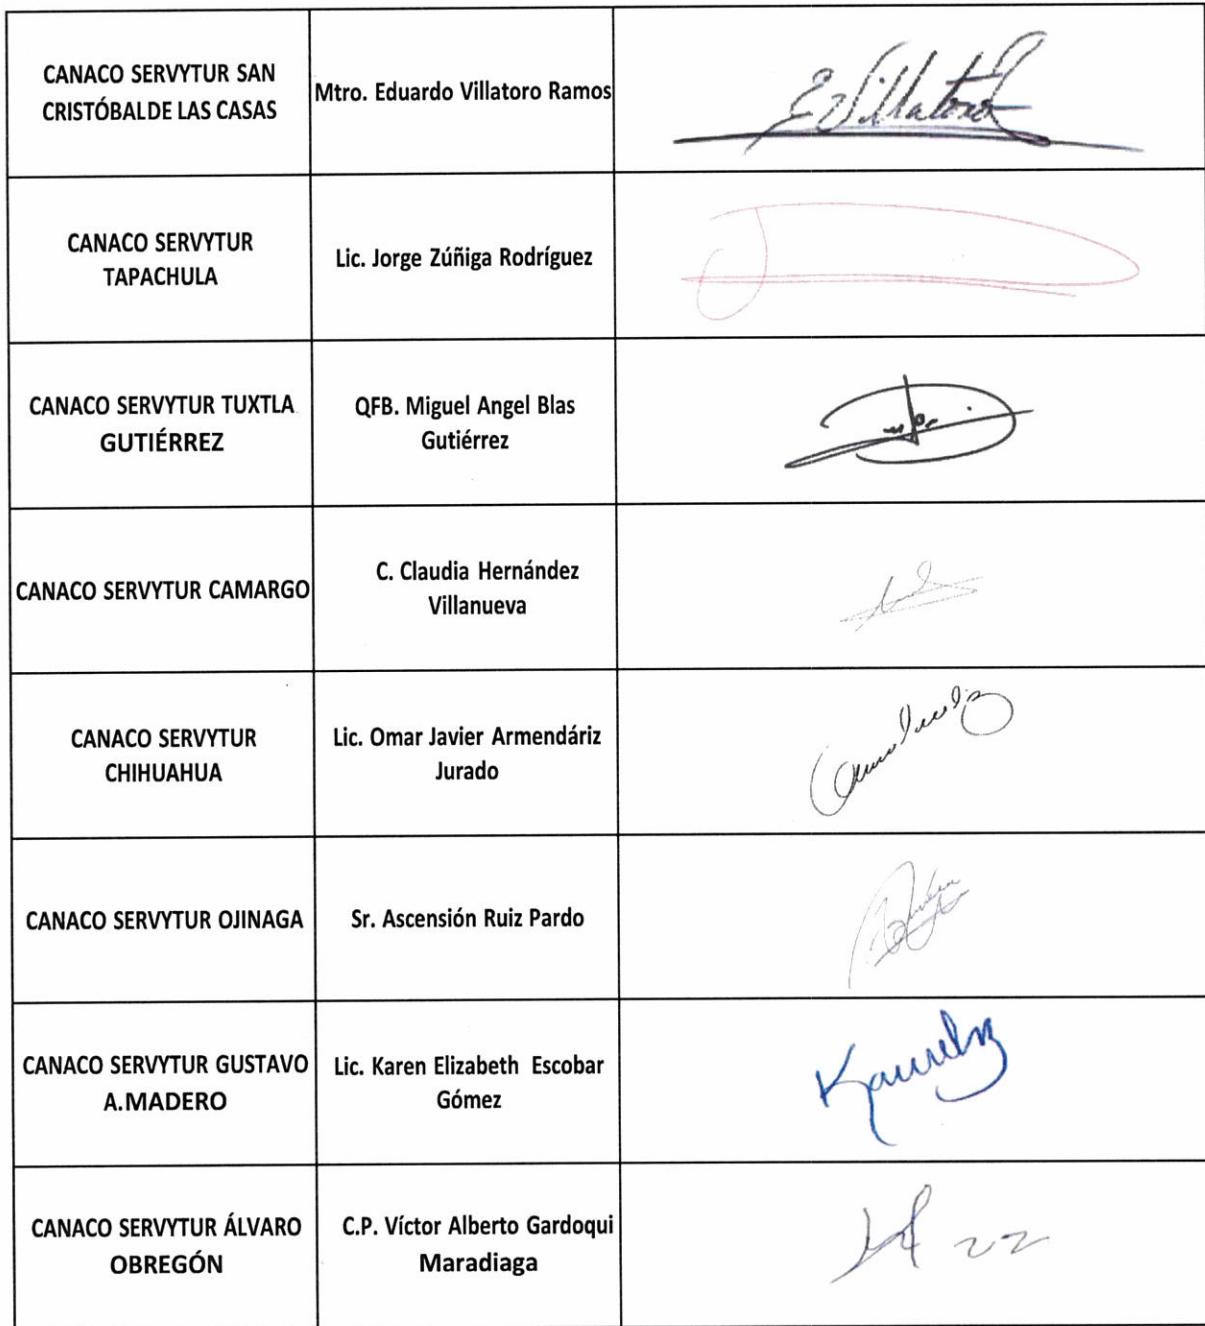 CANACO SERVYTUR SAN
CRISTÓBALDE LAS CASAS
Mtro. Eduardo Villatoro Ramos
E Villatoro
CANACO SERVYTUR
TAPACHULA
Lic. Jorge Zúñiga Rodríguez
CANACO SERVYTUR TUXTLA
GUTIÉRREZ
QFB. Miguel Angel Blas
Gutiérrez
CANACO SERVYTUR CAMARGO
C. Claudia Hernández
Villanueva
CANACO SERVYTUR
CHIHUAHUA
Lic. Omar Javier Armendáriz
Jurado
CANACO SERVYTUR OJINAGA
Sr. Ascensión Ruiz Pardo
CANACO SERVYTUR GUSTAVO
A.MADERO
Lic. Karen Elizabeth Escobar
Gómez
CANACO SERVYTUR ÁLVARO
OBREGÓN
C.P. Víctor Alberto Gardoqui
Maradiaga